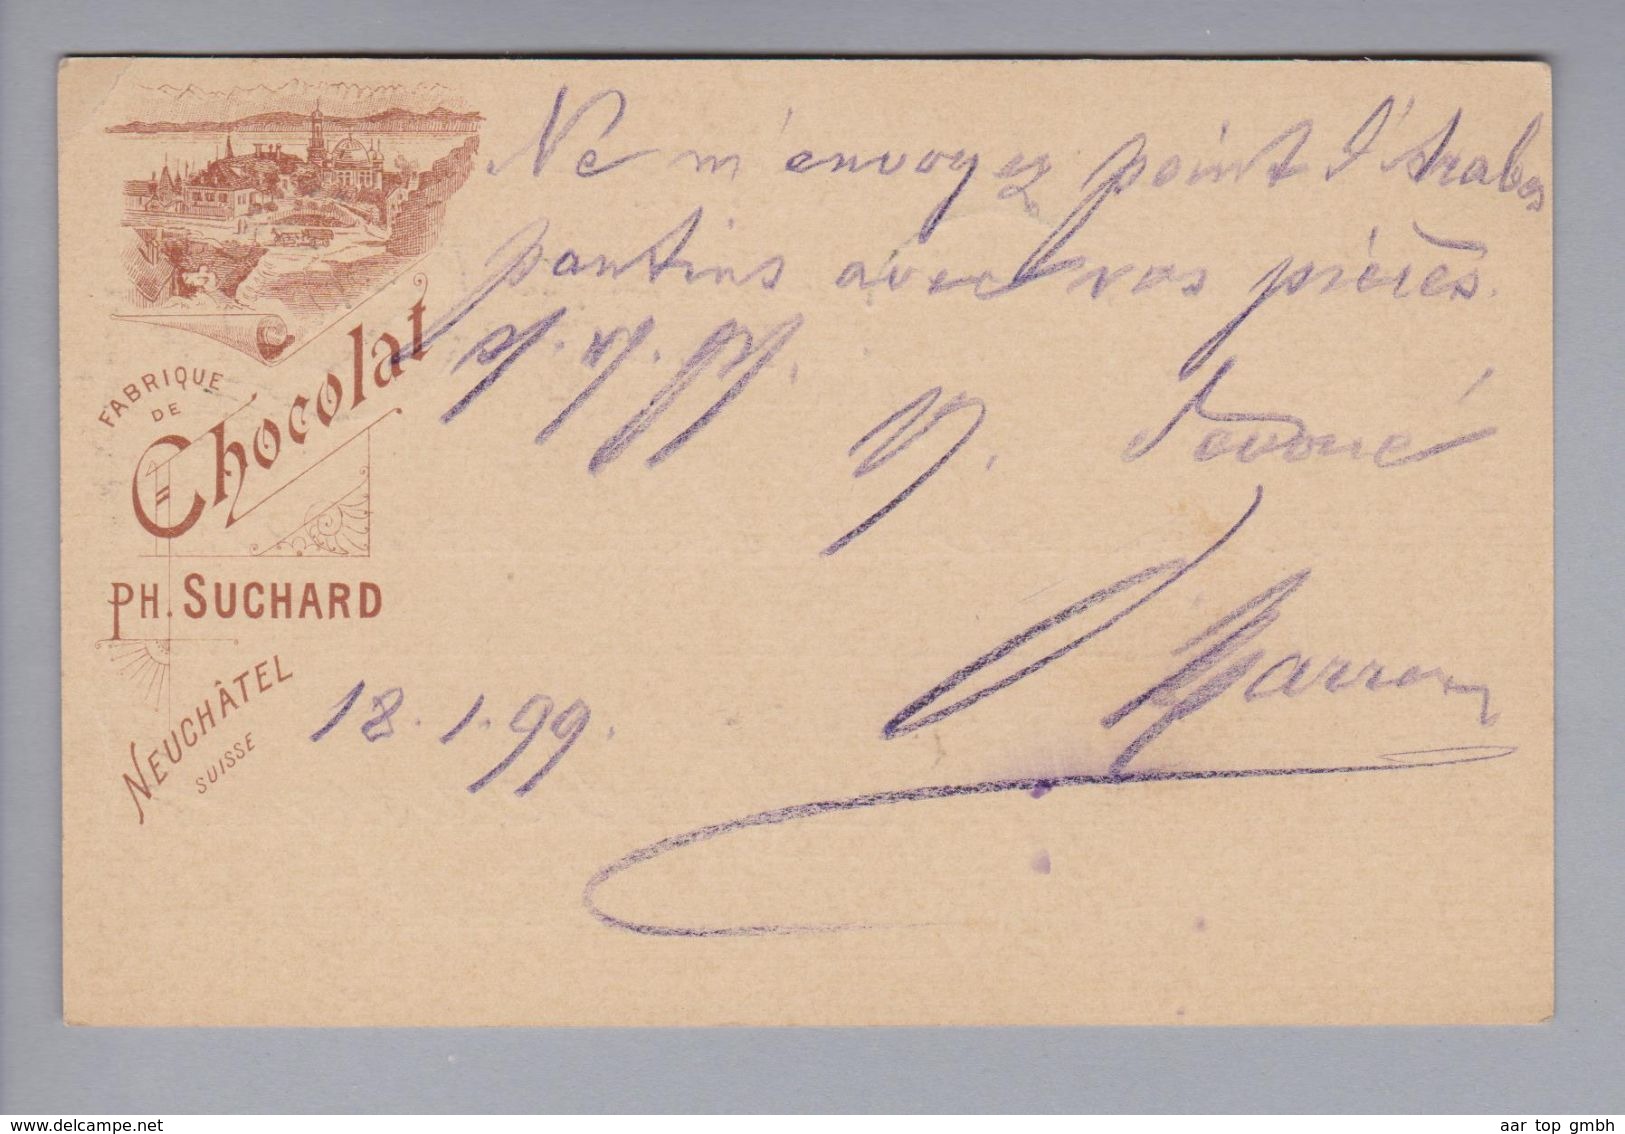 FABRIQUE
DE
Chocolat
PH. SUCHARD
NEUCHÂTEL
SUISSE
Ne m'envoyez point d'Arabes
pantins avec vos pièces.
s. v. pl.
V. dévoué
18.1.99.
www.delcampe.net
aar top gmbh